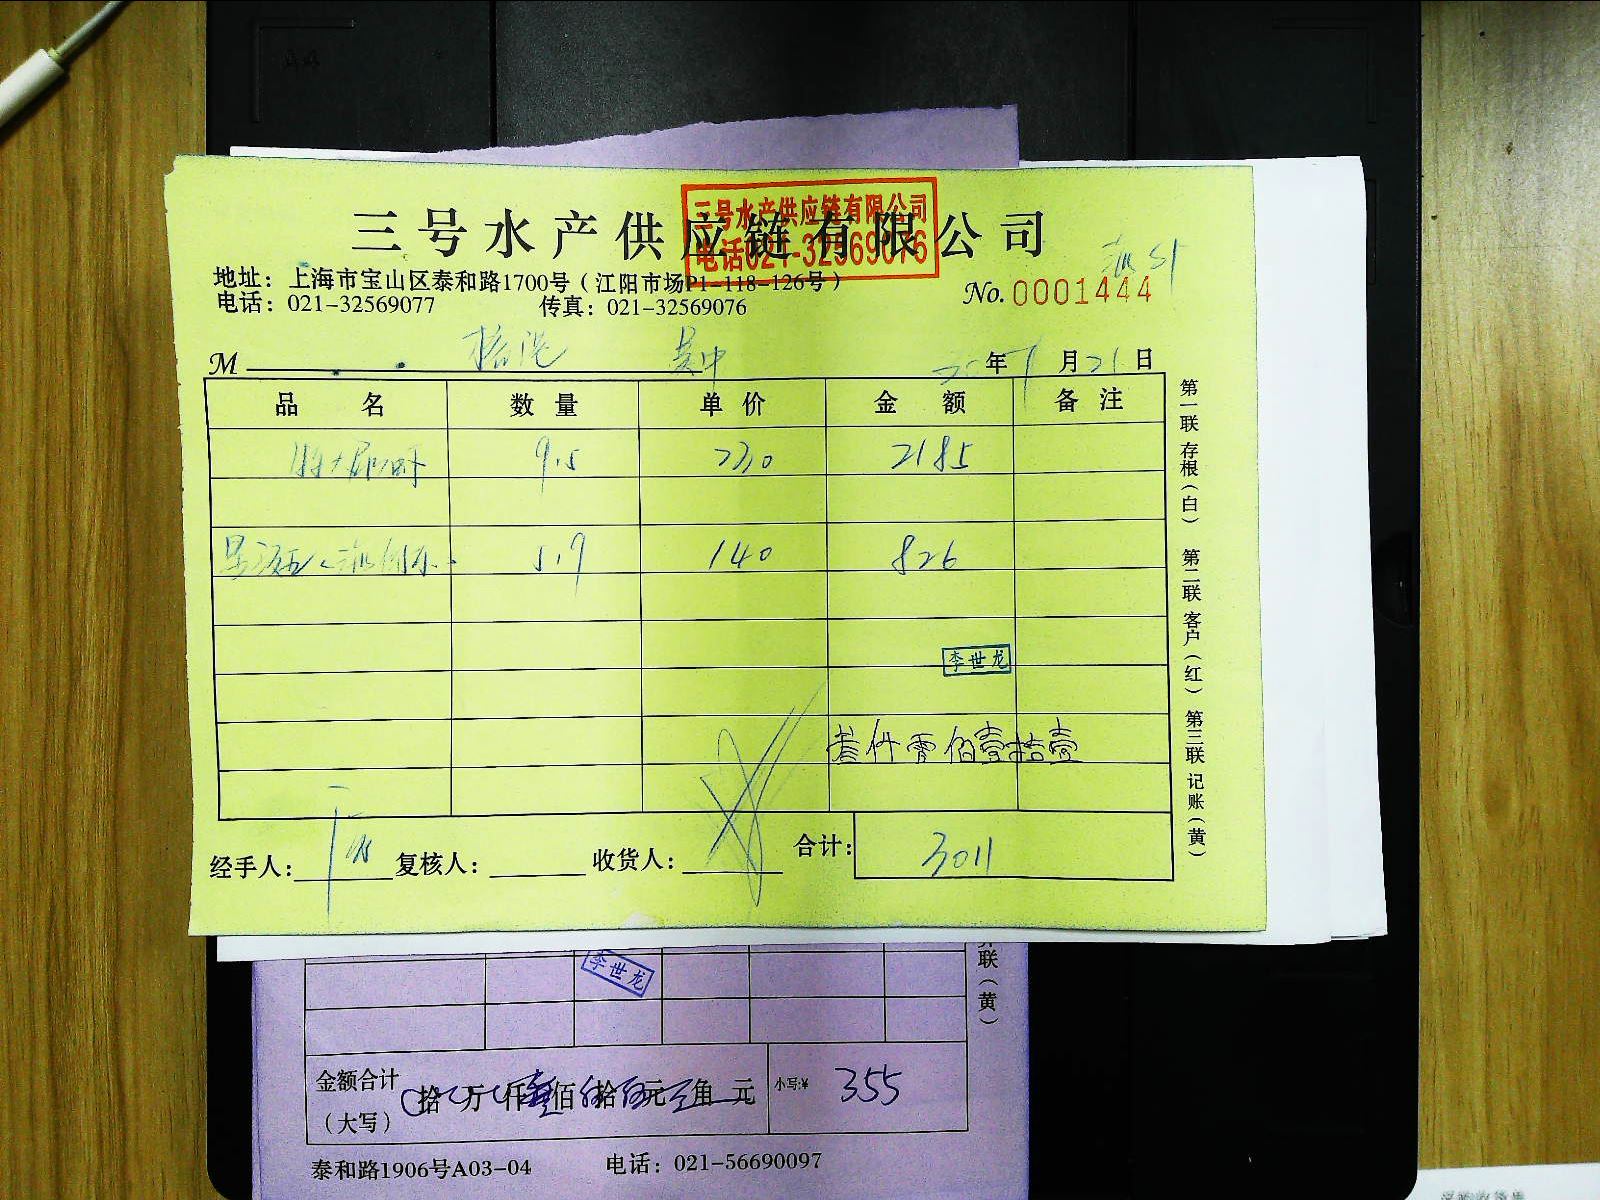 三号水产供应链有限公司
三号水产供应链有限公司
电话021-32569076
地址：上海市宝山区泰和路1700号（江阳市场P1-118-126号）
电话：021-32569077 传真：021-32569076
No.0001444
M 年 月21日
品名 数量 单价 金额 备注
9.5 230 2185
5.9 140 826
李世龙
叁仟零佰壹拾壹
经手人： 复核人： 收货人： 合计：3011
第一联 存根（白） 第二联 客户（红） 第三联 记账（黄）
李世龙
联（黄）
金额合计（大写） 拾 万 仟 佰 拾 元 角 元 小写:¥ 355
泰和路1906号A03-04 电话：021-56690097